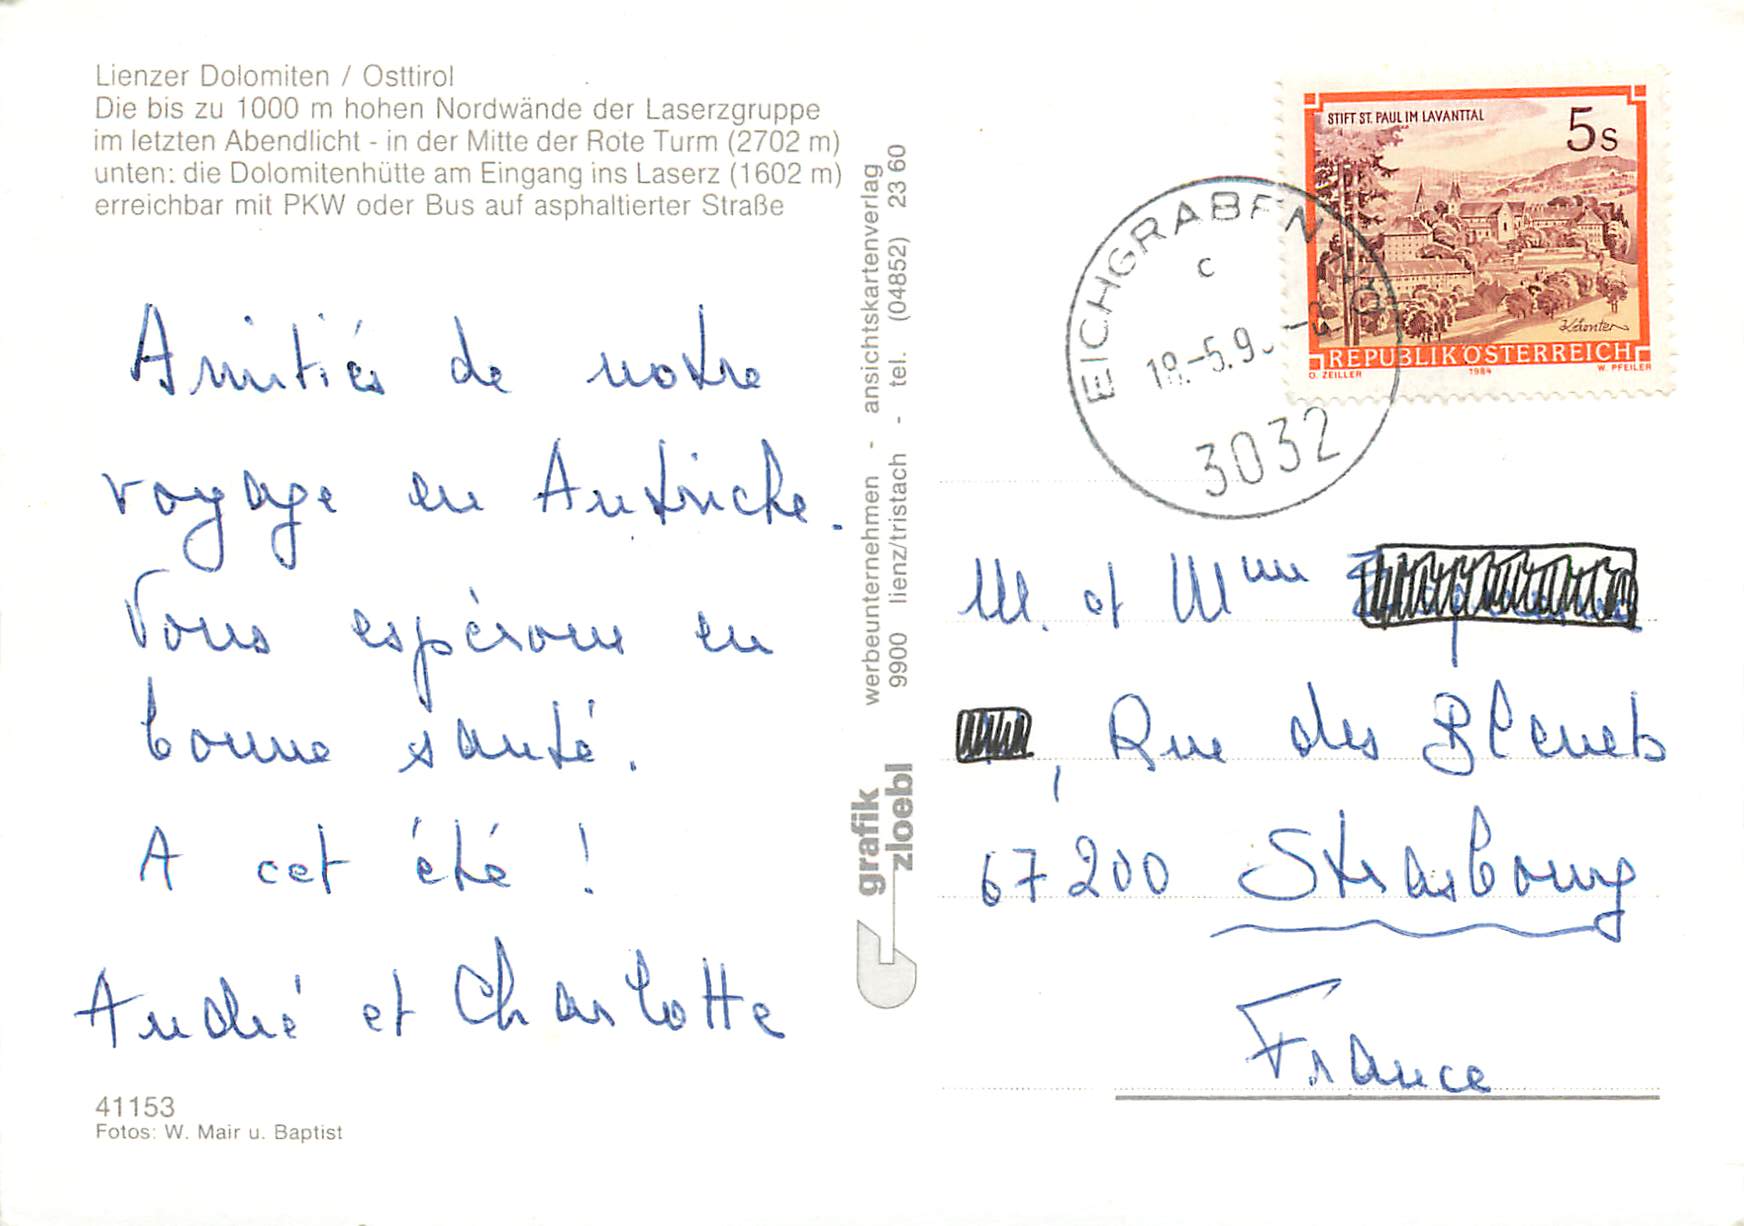 Lienzer Dolomiten / Osttirol
Die bis zu 1000 m hohen Nordwände der Laserzgruppe
im letzten Abendlicht - in der Mitte der Rote Turm (2702 m)
unten: die Dolomitenhütte am Eingang ins Laserz (1602 m)
erreichbar mit PKW oder Bus auf asphaltierter Straße
Amitiés de notre
voyage en Autriche.
Vous espérons en
bonne santé.
A cet été !
André et Charlotte
41153
Fotos: W. Mair u. Baptist
werbeunternehmen - ansichtskartenverlag
9900 lienz/tristach - tel. (04852) 23 60
grafik
zloebl
STIFT ST. PAUL IM LAVANTTAL
5s
REPUBLIK ÖSTERREICH
O. ZEILLER 1984 W. PFEILER
EICHGRABEN
c
18.-5.9
3032
M. et Mme
, Rue des Bleuets
67200 Strasbourg
France